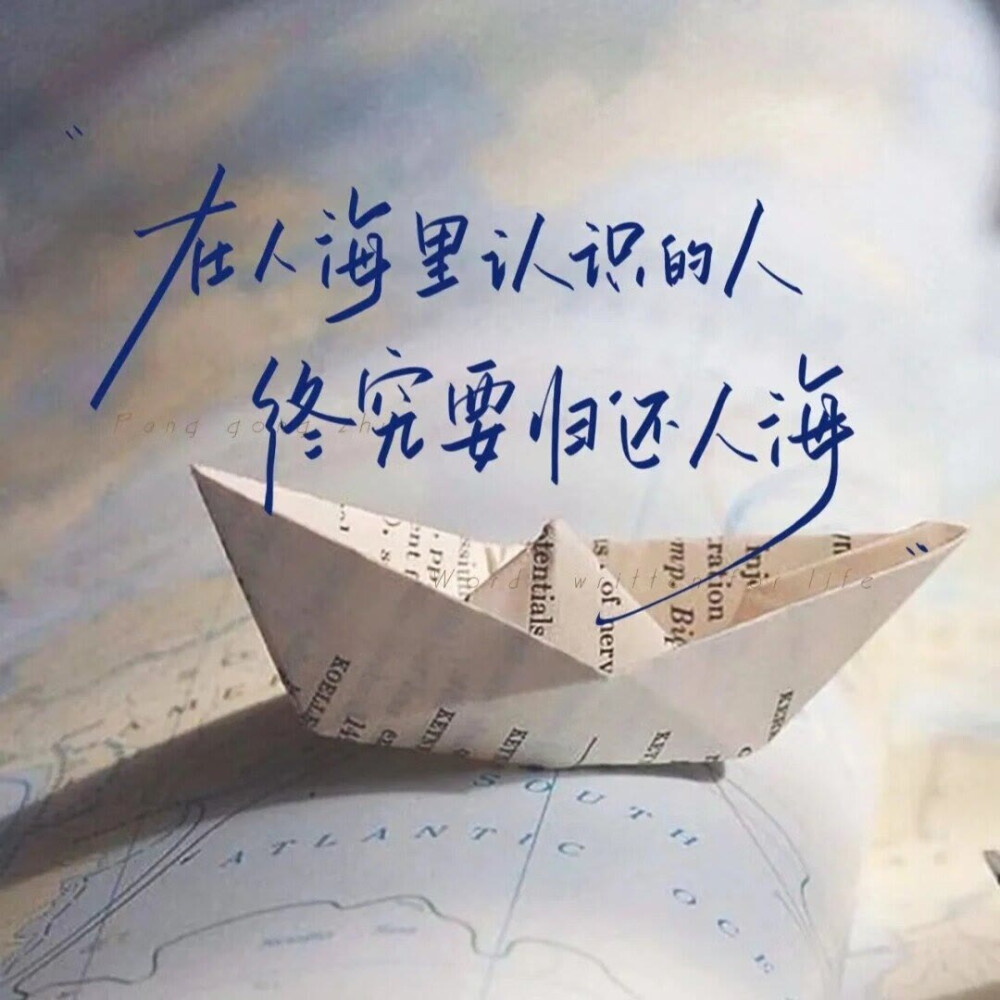 “
在人海里认识的人
终究要归还人海
”
Pang gong zhu
Words written for life
tentials
us. of nerv
omp. Big
ration
Inj
KOELLE
14
SOUTH
ATLANTIC
OCE